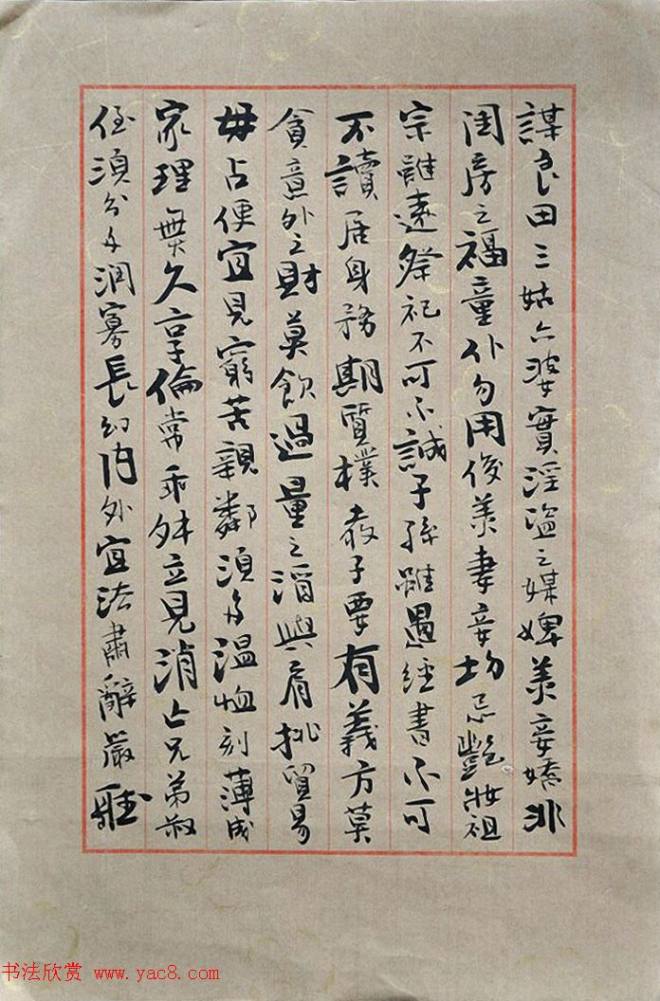 謀良田三姑六婆實淫盜之媒婢美妾嬌非
閨房之福童仆勿用俊美妻妾切忌艷妝祖
宗雖遠祭祀不可不誠子孫雖愚經書不可
不讀居身務期質樸教子要有義方莫
貪意外之財莫飲過量之酒與肩挑貿易
毋占便宜見窮苦親鄰須多溫恤刻薄成
家理無久享倫常乖舛立見消亡兄弟叔
侄須分多潤寡長幼內外宜法肅辭嚴聽
书法欣赏 www.yac8.com